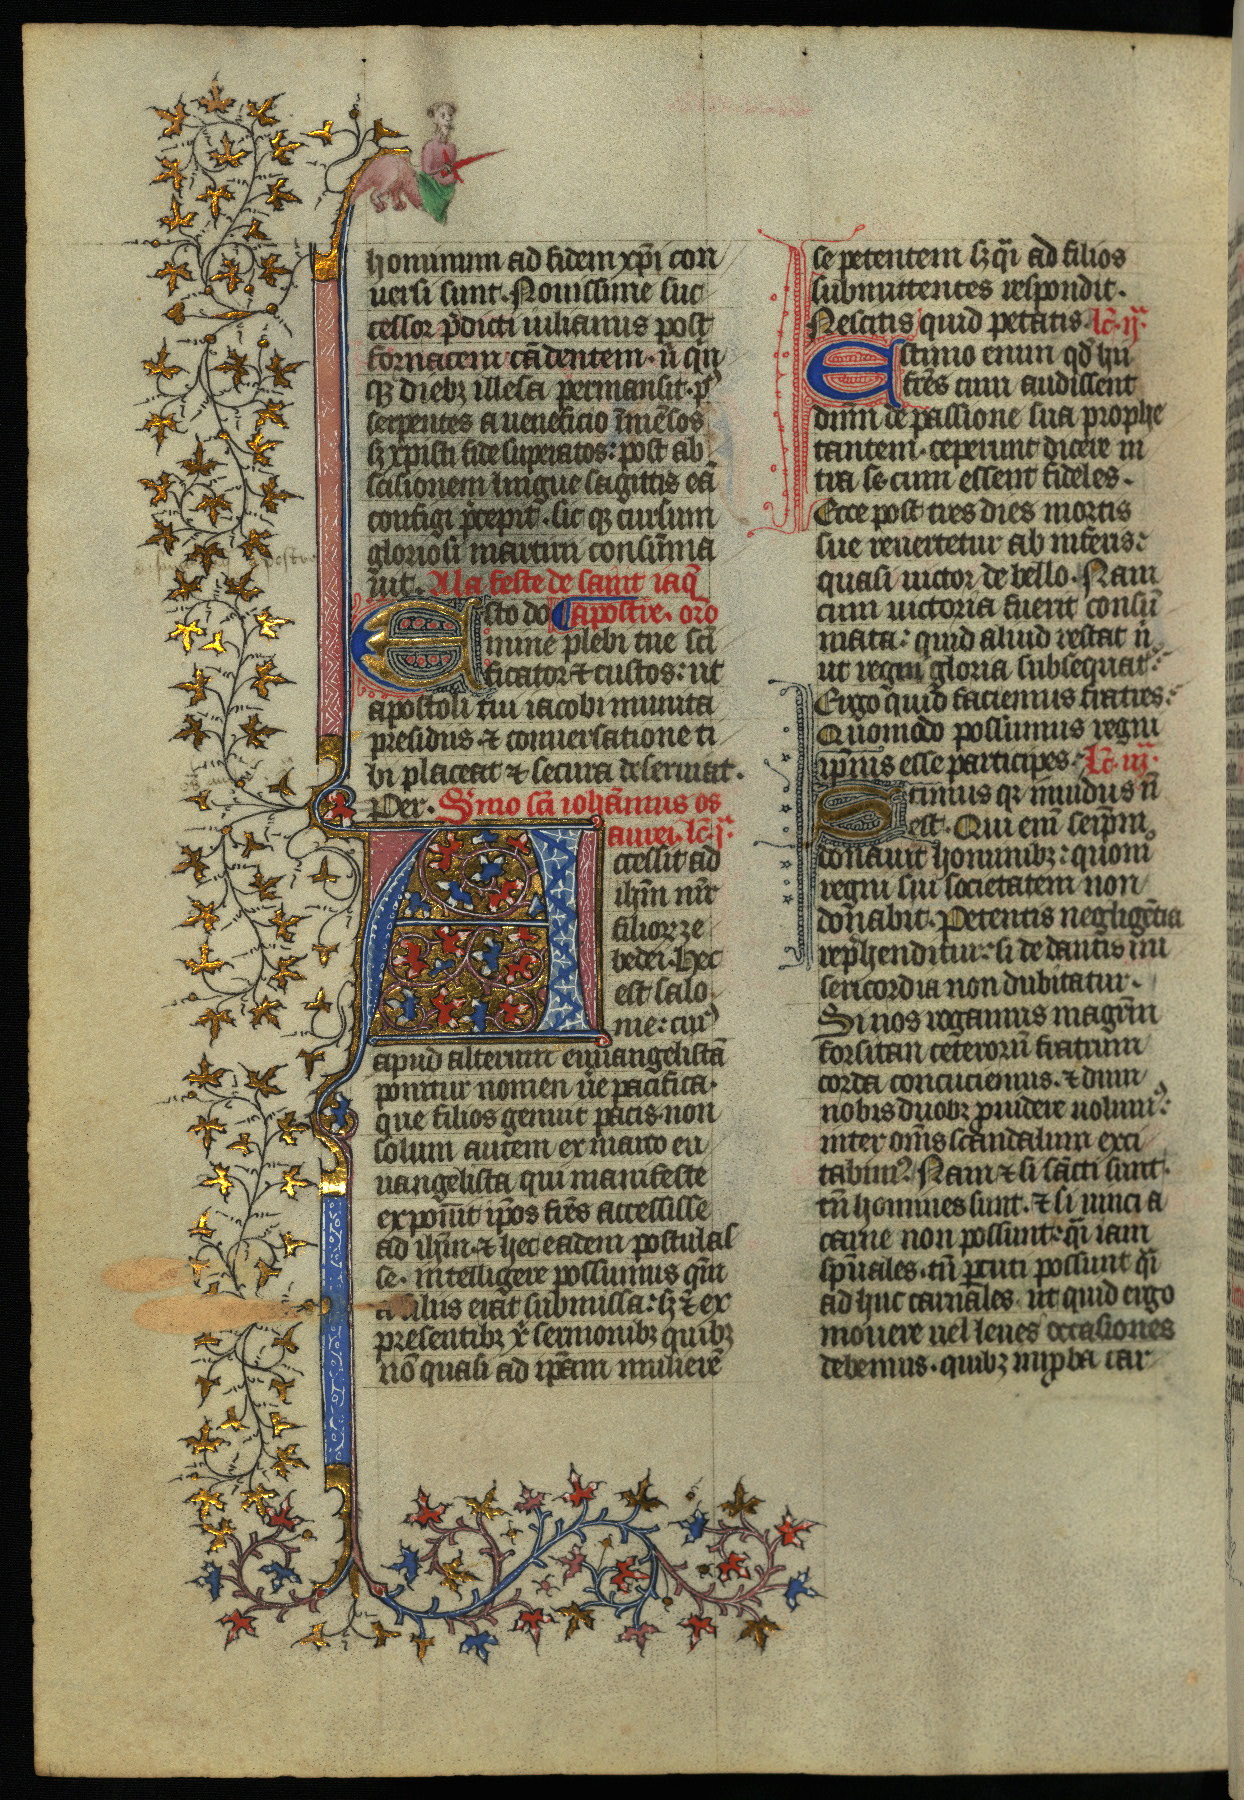 hominum ad fidem xp̄i con
uersi sunt. Nouissime suc
cessor p̄dicti iulianus post
fornacem cādentem. ī q̄ quī
qꝫ diebꝫ illesa permansit. p᷒
serpentes a uenefico īmēsos
sꝫ xpisti fide superatos: post ab
scisionem lingue sagittis eā
configi p̄cepit. sic qꝫ cursum
gloriosi martirii consūma
uit. A la feste de saint iaq̄
Esto do apostre. oro
mine plebi tue scī
ficator ⁊ custos: ut
apostoli tui iacobi munita
presidiis ⁊ conuersatione ti
bi placeat ⁊ secura deseruiat.
Per. Smo scī iohannis os
aurei. lc̄. jᵃ.
Accessit ad
ihm̄ mr̄
filioꝝ ze
bedei. Hec
est salo
me: cuiꝰ
apud alterum euuangelistā
ponitur nomen u̾e pacifica.
que filios genuit pacis. non
solum autem ex marco eu
uangelista qui manifeste
exponit ip̄os fr̄es accessisse
ad ihm̄. ⁊ hec eadem postulas
se. intelligere possumus qm̄
a filiis erat submissa: sꝫ ⁊ ex
presentibꝫ xp̄i sermonibꝫ quibꝫ
nō quasi ad ip̄am mulierē
se petentem sꝫ q̄i ad filios
submittentes respondit.
Nescitis quid petatis. lc̄. ij.
Estimo enim qd̄ hii
fr̄es cum audissent
dn̄m de passione sua prophe
tantem. ceperunt dicere in
tra se cum essent fideles.
Ecce post tres dies mortis
sue reuertetur ab inferis:
quasi uictor de bello. Nam
cum uictoria fuerit consū
mata: quid aliud restat n̄
ut regni gloria subsequat᷒.
Ergo quid faciemus fratres.
Quomodo possumus regni
ip̄ius esse participes. lc̄. iij.
Scimus qꝛ inuidus n̄
est. Qui em̄ seip̄m
donauit hominibꝫ: quom̄
regni sui societatem non
donabit. Petentis negligētia
rep̄henditur: si de dantis mi
sericordia non dubitatur.
Si nos rogamus magr̄m
forsitan ceterorū fratrum
corda concuciemus. ⁊ dum
nobis duobꝫ p̄uidere uolumꝰ:
inter om̄s scandalum exci
tabimꝰ. Nam ⁊ si sancti sunt.
tn̄ homines sunt. ⁊ si uinci a
carne non possunt: q̄i iam
sp̄uales. tn̄ p̄cuti possunt q̄i
ad huc carnales. ut quid ergo
mouere uel leues occasiones
debemus. quibꝫ in ꝓba car